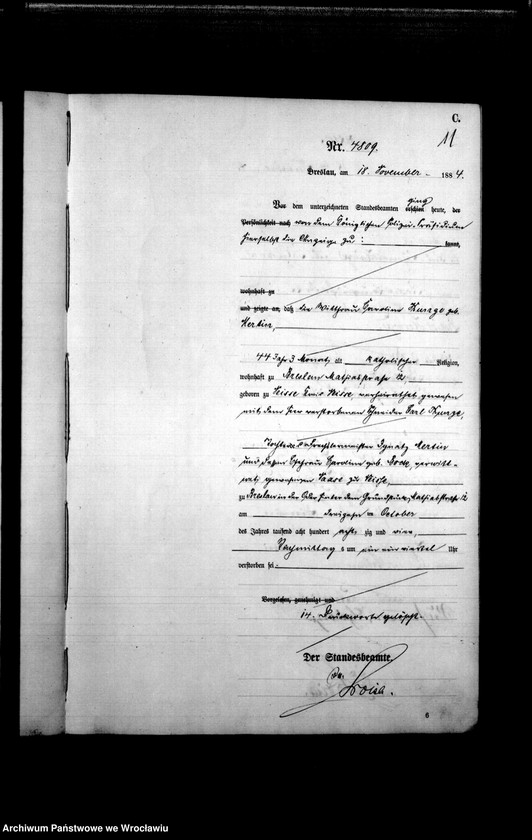 C.
11
Nr. 4809.
Breslau, am 18. November 1884.
ging
Vor dem unterzeichneten Standesbeamten erschien heute, der
Persönlichkeit nach von dem Königlichen Polizei-Präsidium
hierselbst die Anzeige zu: kannt,
wohnhaft zu
und zeigte an, daß die Wittfrau Karoline Kunze geb.
Mertin,
44 Jahr 3 Monat alt katholischer Religion,
wohnhaft zu Breslau Mathiasstraße 12,
geboren zu Neisse Kreis Neisse, verheirathet gewesen
mit dem hier verstorbenen Schneider Carl Kunze,
Tochter des Ignatz Mertin
und dessen Ehefrau Karoline geb. verwitt-
wet gewesenen zu Neisse,
zu Breslau in der Oder hinter dem Grundstück Mathiasstraße 12
am dreizehn October
des Jahres tausend acht hundert acht zig und vier,
Nachmittag s um ein viertel Uhr
verstorben sei
Vorgelesen, genehmigt und
14 Druckworte gelöscht.
Der Standesbeamte.
6
Archiwum Państwowe we Wrocławiu